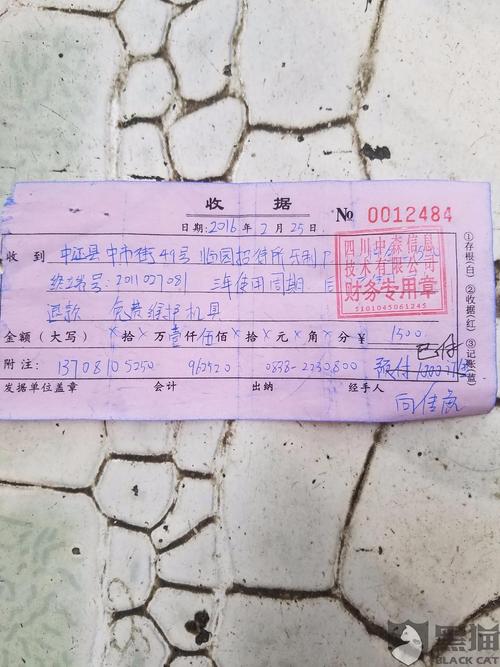 收 据
日期:2016年2月25日 № 0012484
收到 中江县中市街49号 临园招待所
四川中森信息
技术有限公司
财务专用章
5101045061245
终端号:2011027081 三年使用周期
退款 免费维护机具
金额(大写) ×拾×万壹仟伍佰×拾×元×角×分 ¥ 1500
附注: 13708105250 962520 0838-2230800 预付1000元 已付
发据单位盖章 会计 出纳 经手人
向佳虎
①存根(白) ②收据(红) ③记账(蓝)
黑猫
BLACK CAT